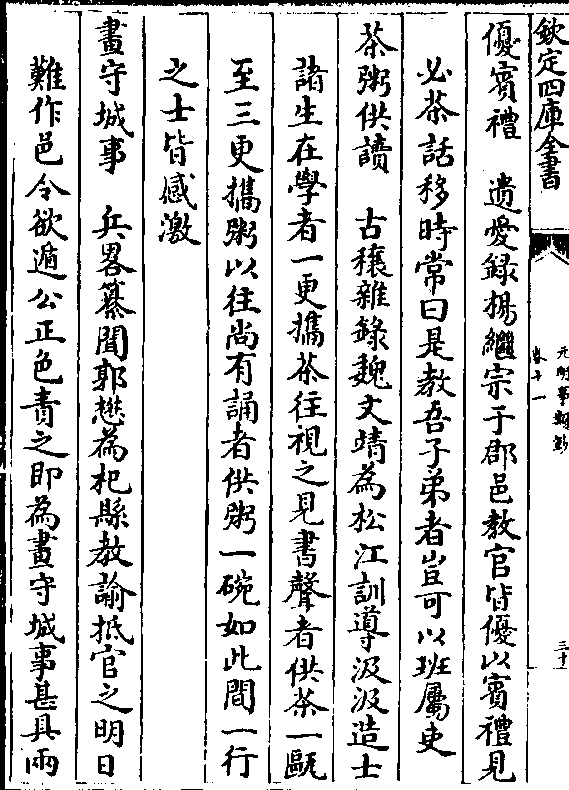 欽定四庫全書
元明事類鈔
卷十一
三十
優賓禮　遺愛録楊繼宗于郡邑教官皆優以賓禮見
必茶話移時常曰是教吾子弟者豈可以班屬吏
茶粥供讀　古穰雜錄魏文靖為松江訓導汲汲造士
諸生在學者一更擕茶往視之見書聲者供茶一甌
至三更擕粥以往尚有誦者供粥一碗如此間一行
之士皆感激
畫守城事　兵畧纂聞郭懋為杞縣教諭抵官之明日
難作邑令欲遁公正色責之即為畫守城事甚具兩